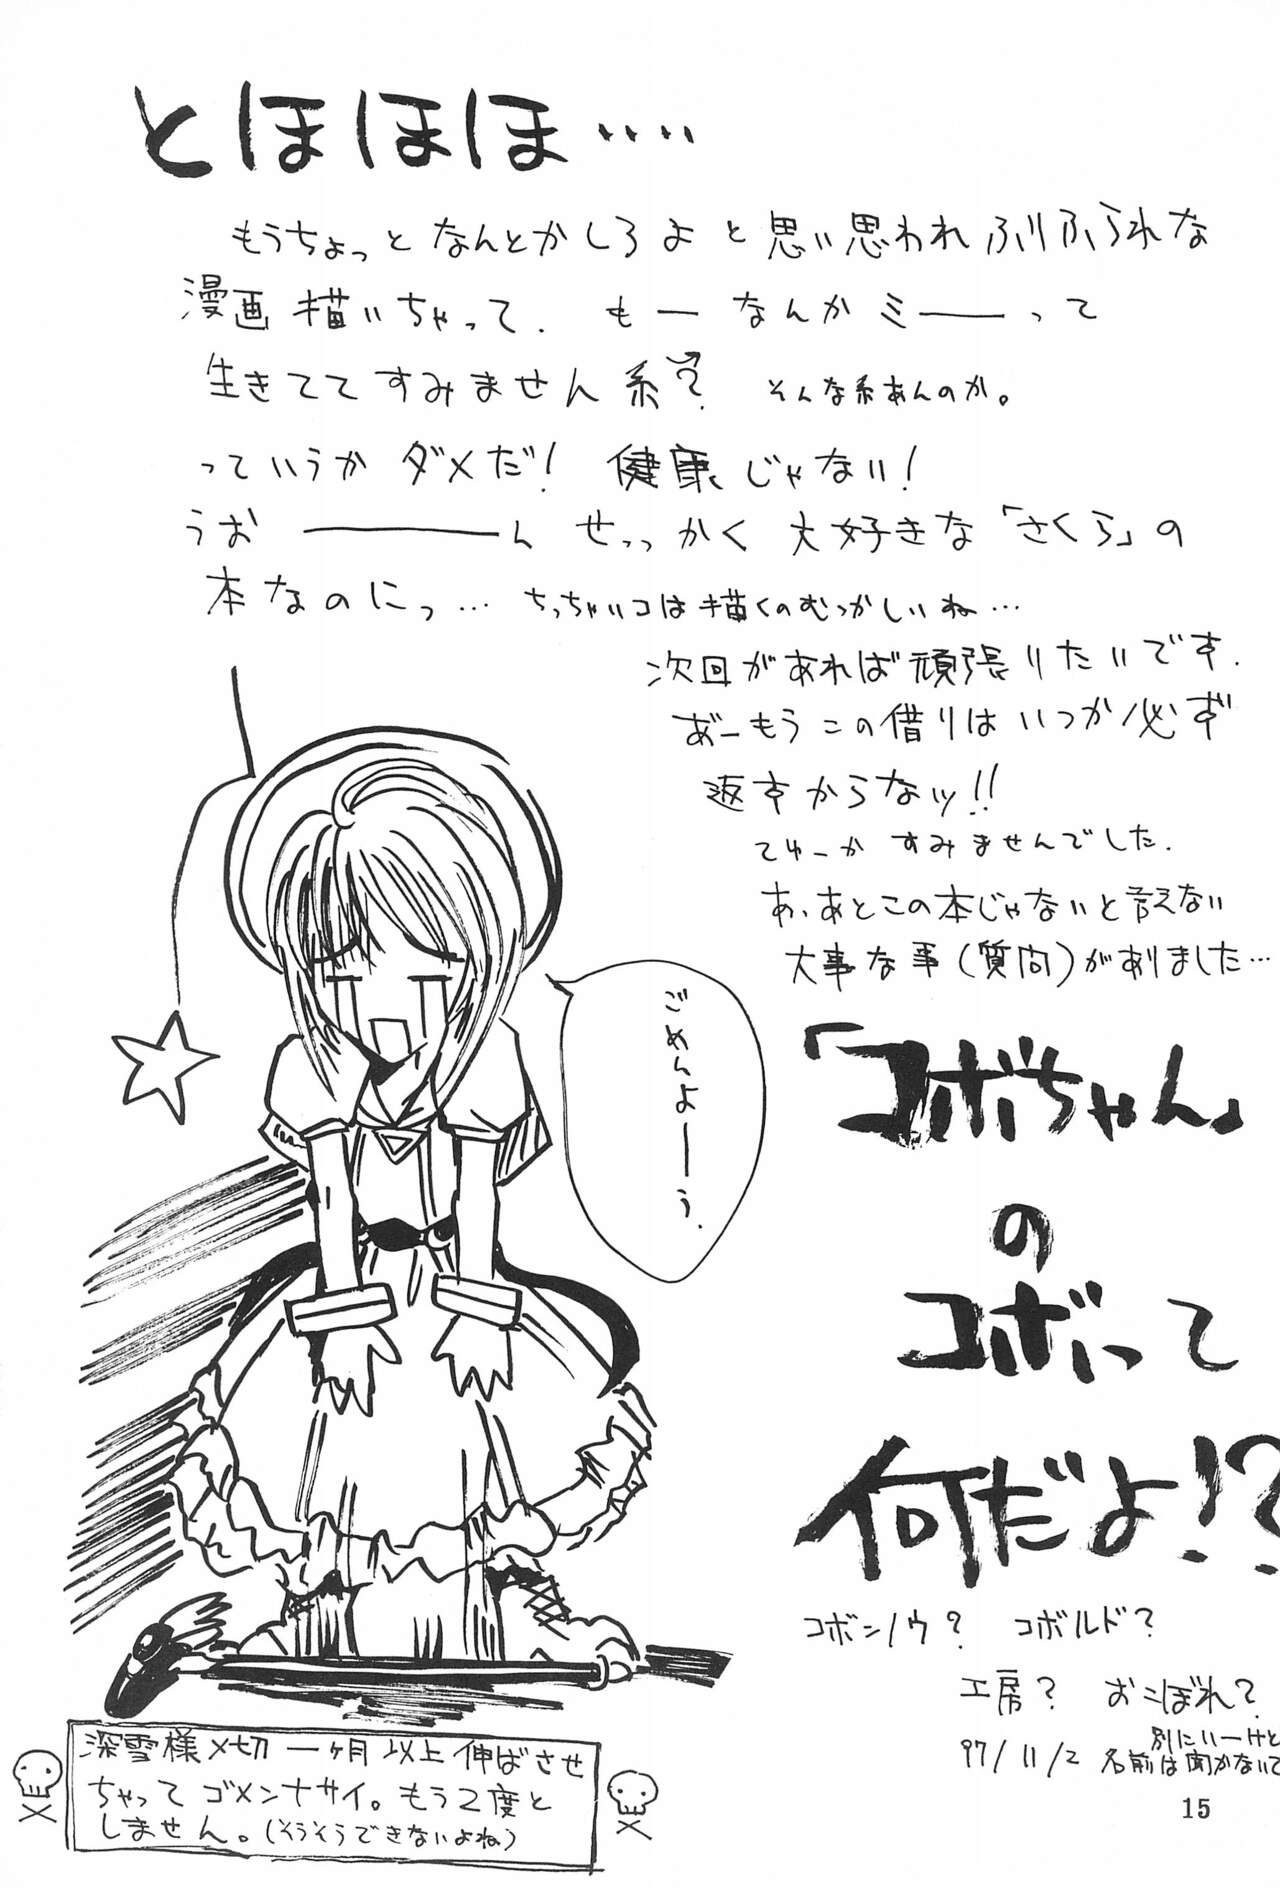 とほほほ‥‥
もうちょっとなんとかしろよと思い思われふりふられな
漫画描いちゃって. もーなんかミーーって
生きててすみません系? そんな系あんのか。
っていうかダメだ! 健康じゃない!
うおーーーん せっっかく大好きな「さくら」の
本なのにっ… ちっちゃいコは描くのむつかしいね…
次回があれば頑張りたいです.
あ゛ーもうこの借りはいつか必ず
返すからなッ!!
てゆーかすみませんでした.
あ、あとこの本じゃないと言えない
大事な事(質問)がありました…
「コボちゃん」
の
コボって
何だよ!?
コボンノウ? コボルド?
工房? おこぼれ?
別にいーけど
97/11/2 名前は聞かないで
ごめんよーう.
深雪様〆切一ヶ月以上伸ばさせ
ちゃってゴメンナサイ。もう2度と
しません。(そうそうできないよね)
15